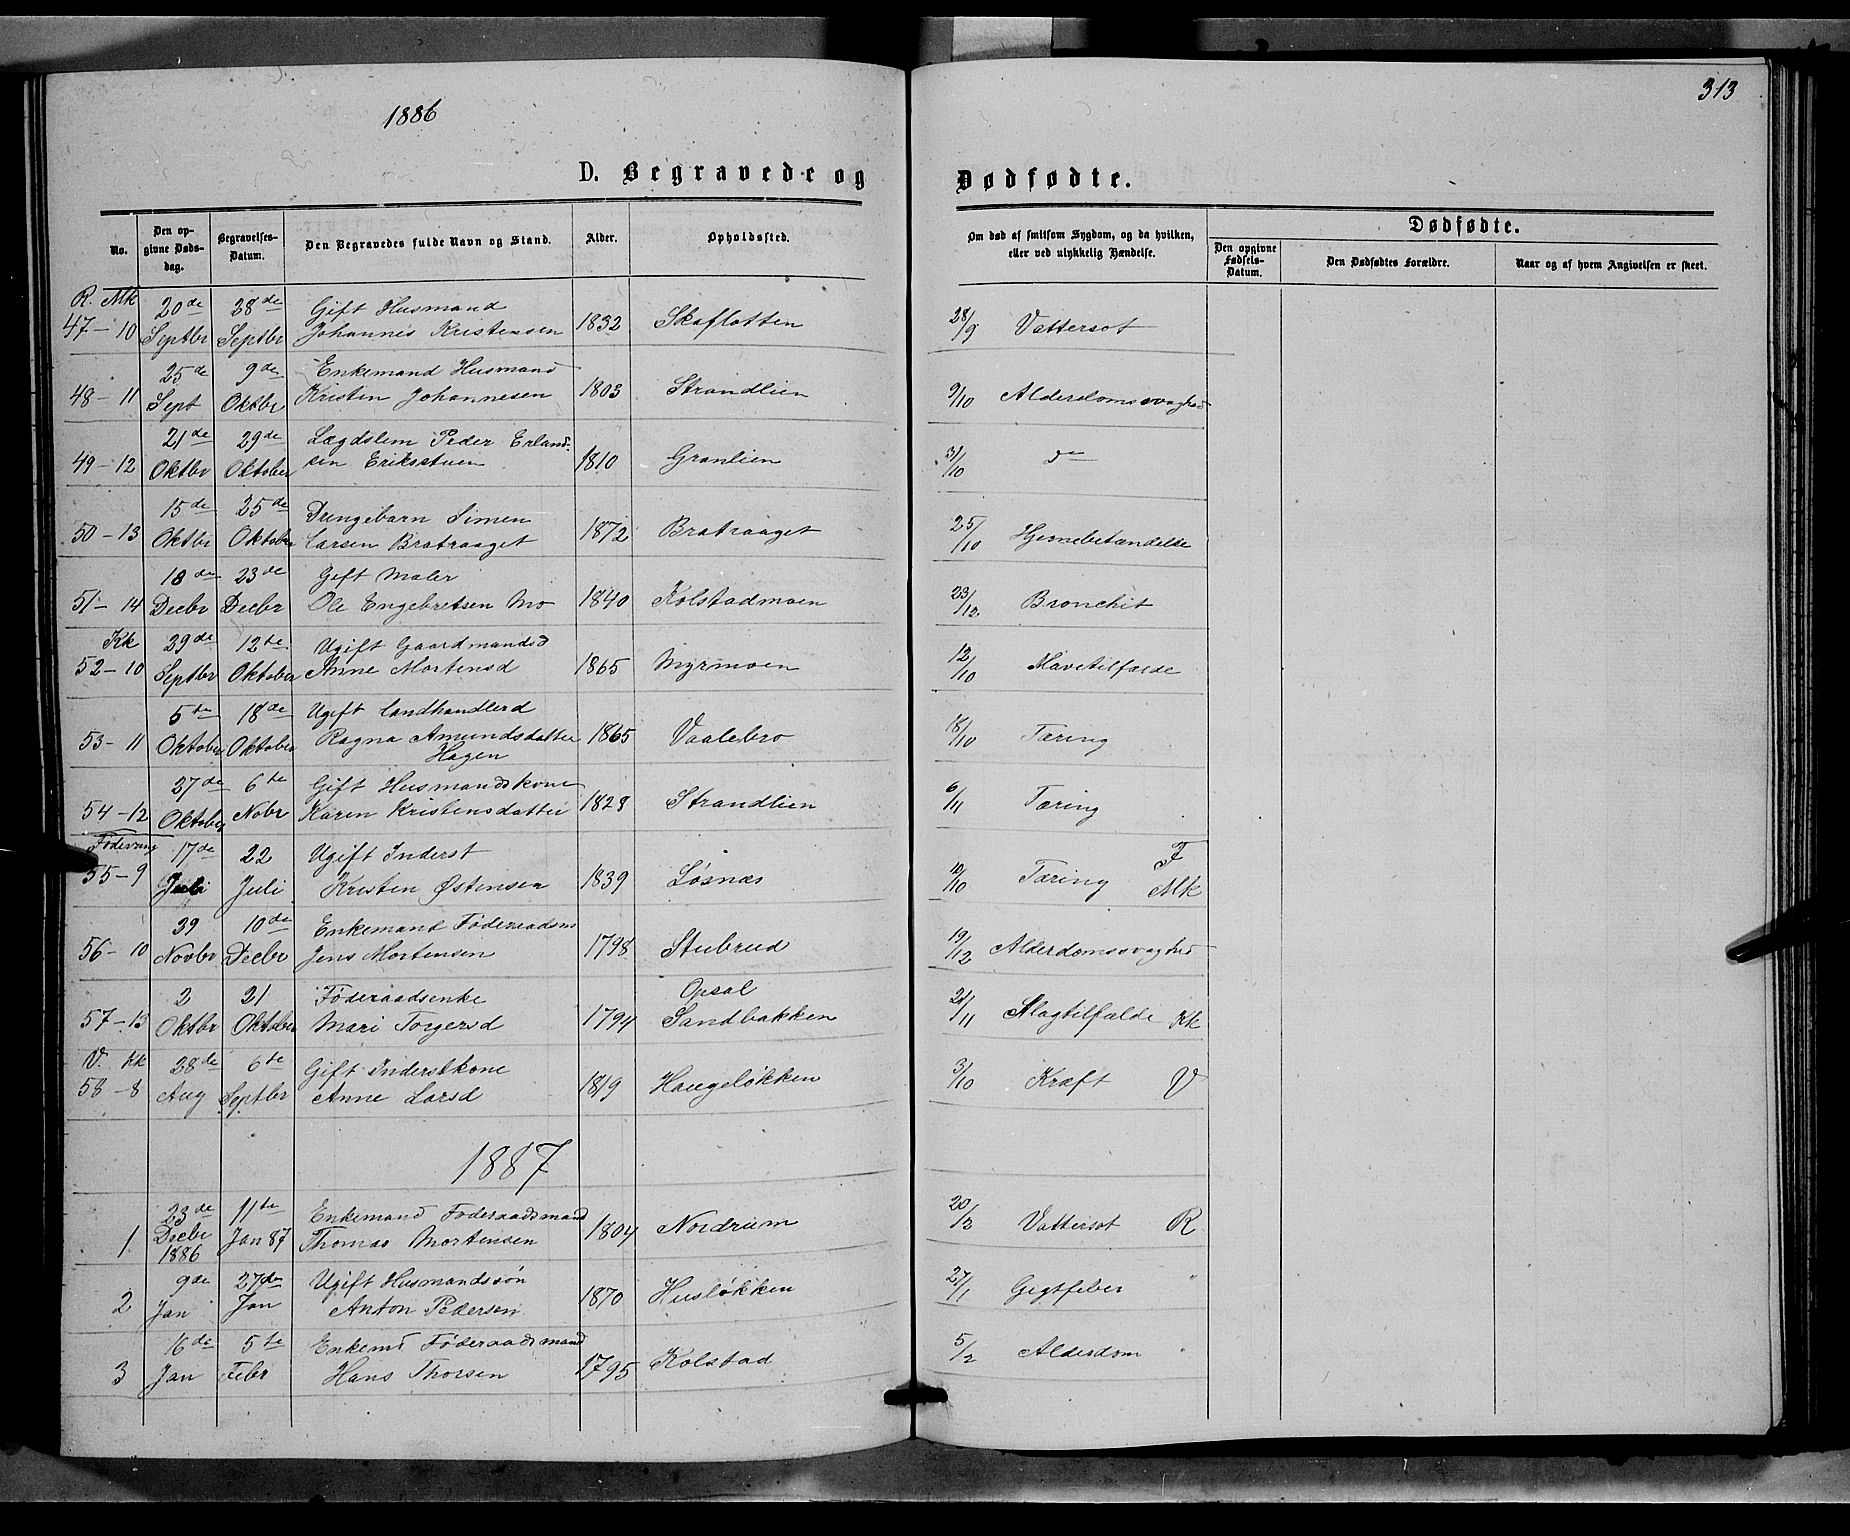 1886
313
D. Begravede og Dødfødte.
No.
Den opgivne Dødsdag.
Begravelses-Datum.
Den Begravedes fulde Navn og Stand.
Alder.
Opholdssted.
Om død af smitsom Sygdom, og da hvilken, eller ved ulykkelig Hændelse.
Dødfødte.
Den opgivne Fødsels-Datum.
Den Dødfødtes Forældre.
Naar og af hvem Angivelsen er skeet.
R. Mk 20de 28de Gift Husmand
47-10 Septbr Septbr Johannes Kristensen 1832 Skaflotten 28/9 Vattersot
25de 9de Enkemand Husmand
48-11 Sept Oktbr Kristen Johannesen 1803 Strandlien 9/10 Alderdomssvaghed
21de 29de Lægdslem Peder Erland-
49-12 Oktbr Oktober sen Eriksstuen 1810 Granlien 31/10 do
15de 25de Drengebarn Simen
50-13 Oktbr Oktober Larsen Bratraaget 1872 Bratraaget 25/10 Hjernebetændelse
18de 23de Gift Maler
51-14 Decbr Decbr Ole Engebretsen Mo 1840 Kolstadmoen 23/12 Bronchit
Kk 29de 12te Ugift Gaardmandsd
52-10 Septbr Oktober Anne Mortensd 1865 Myrmoen 12/10 Mavetilfælde
5te 18de Ugift Landhandlerd
53-11 Oktober Oktober Ragna Amundsdatter 1865 Vaalebro 18/10 Tæring
Hagen
27de 6te Gift Husmandskone
54-12 Oktober Nobr Karen Kristensdatter 1828 Strandlien 6/11 Tæring
Fødevang 17de 22 Ugift Inderst F
55-9 Juli Juli Kristen Østensen 1839 Løsnæs 12/10 Tæring Mk
29 10de Enkemand Føderaadsm
56-10 Novbr Decbr Jens Mortensen 1798 Stubrud 19/12 Alderdomssvaghed
2 21 Føderaadsenke Opsal
57-13 Oktbr Oktober Mari Torgersd 1794 Sandbakken 21/11 Slagtilfælde Kk
V. Kk 28de 6te Gift Inderstkone
58-8 Aug Septbr Anne Larsd 1819 Haugeløkken 3/10 Kræft V
1887
23de 11te Enkemand Føderaadsmand
1 Decbr 1886 Jan 87 Thomas Mortensen 1804 Nordrum 20/2 Vattersot R
9de 27de Ugift Husmandssøn
2 Jan Jan Anton Pedersen 1870 Husløkken 27/1 Gigtfeber "
16de 5te Enkemd Føderaadsmand
3 Jan Febr Hans Thorsen 1795 Kolstad 5/2 Alderdom "